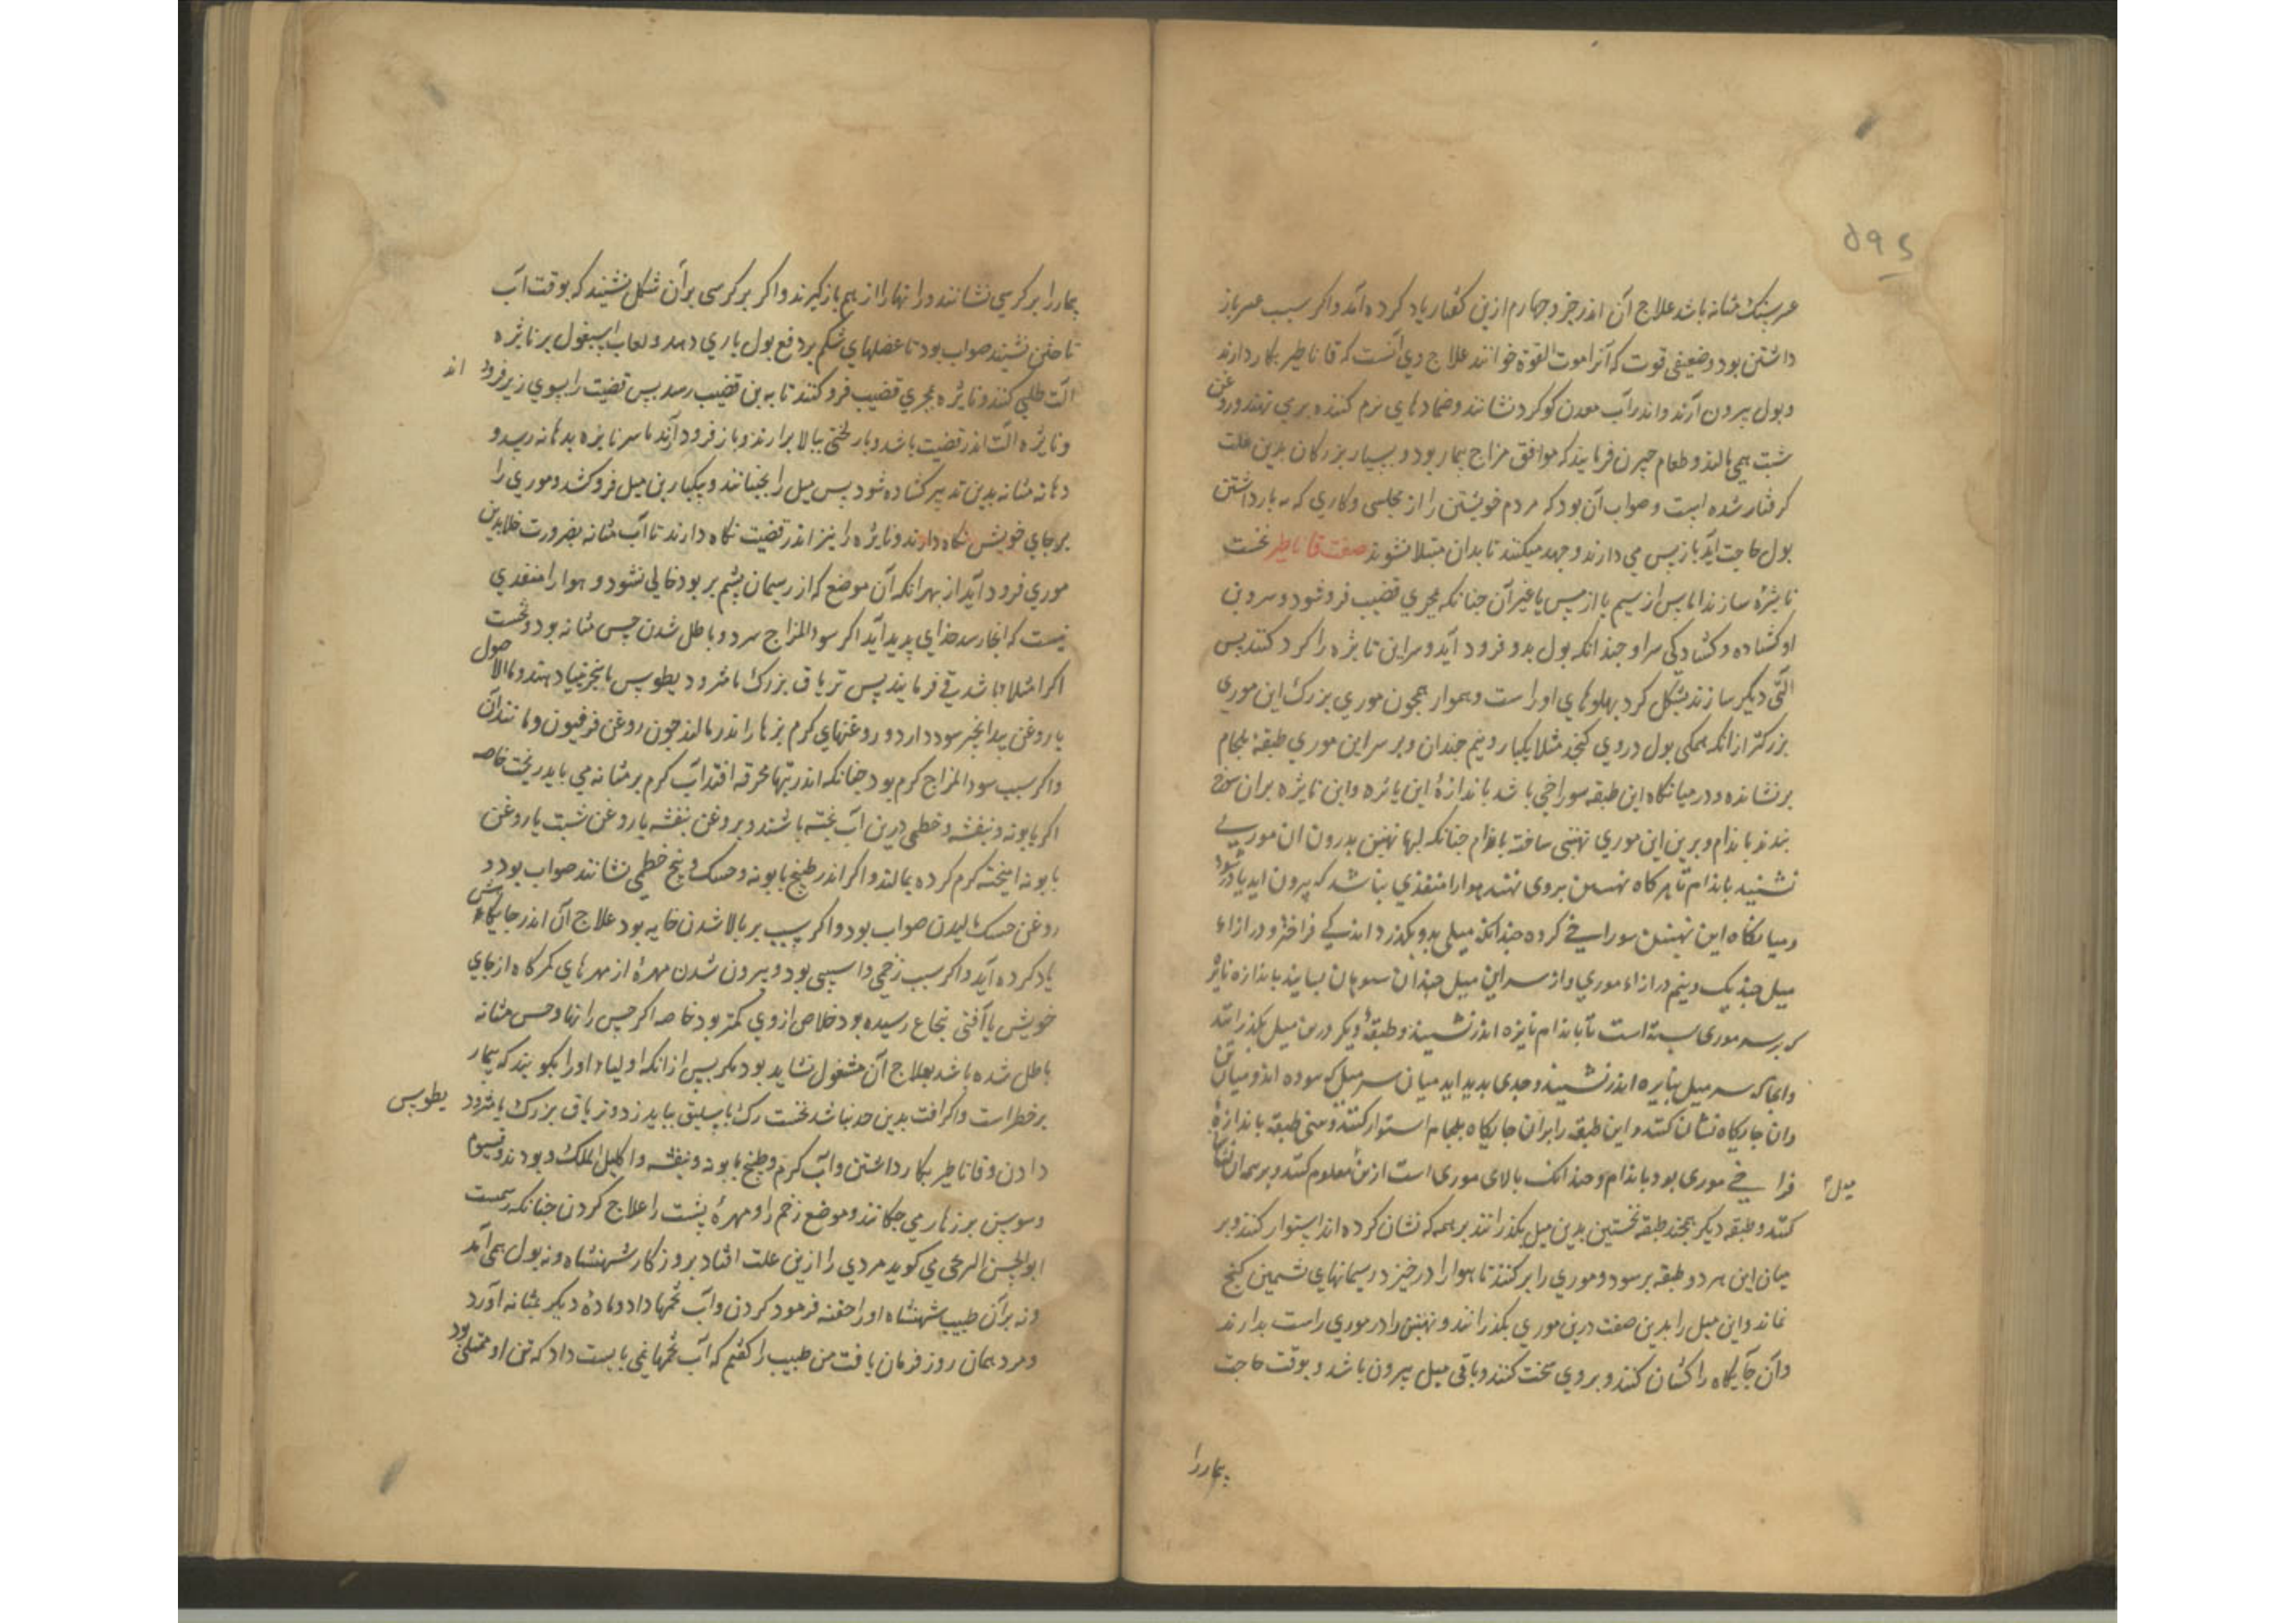 ۵۹۵
عسر سنک مثانه باشد علاج آن اندر جزو چهارم ازین کفتار یاد کرده آمد واکر سبب عسر باز
داشتن بود وضعیفی قوت که آنرا موت القوة خوانند علاج وی آنست که قاثاطیر بکار دارند
وبول بیرون آرند واندر آب معدن کوکرد نشانند وضمادهای نرم کننده بر می نهند وروغن
شبت همی مالند وطعام چیزی فرمایند که موافق مزاج بیمار بود وبسیار بزرکان بدین علت
کرفتار شده است وصواب آن بود که مردم خویشتن را از مجلسی وکاری که به بازداشتن
بول حاجت آید باز پس می دارند وجهد میکنند تا بدان مبتلا نشوند صفت قاثاطیر نخست
نایژه سازند اما پس از سیم یا از مس یا غیر آن چنانکه بمجری قضیب فرو شود وسر وبن
او کشاده وکشادکی سر او چندانکه بول بدو فرود آید وسر این نایژه را کرد کنند پس
آلتی دیکر سازند بشکل کرد پهلوهای او راست وهموار همچون موری بزرک این موری
بزرکتر از انکه همکی بول در وی کنجد مثلا یکبار ونیم چندان وبر سر این موری طبقه بلجام
برنشانده ودر میانکاه این طبقه سوراخی باشد باندازهٔ این نایژه واین نایژه بران سوراخ
بندند باندام وبر بن این موری نهنبنی ساخته باندام چنانکه لبها نهنبن بدرون ان موری
نشیند باندام تا هرکاه نهنبن بروی نهند هوا را منفذی نباشد که بیرون اید یا در شود
ومیانکاه این نهنبن سوراخی کرده چندانکه میلی بدو بکذرد اندکی فراختر ودرازاء
میل چند یک ونیم درازاء موری واز سر این میل چندان بسوهان بسایند باندازه نایژه
که بر سر موری بسته است تا باندام نایژه اندر نشیند وطبقهٔ دیکر درین میل بکذرانند
وانجا که سر میل بنایژه اندر نشیند وحدی پدید اید میان سر میل که سوده اند ومیان
وان جایکاه نشان کنند واین طبقه را بران جایکاه بلجام استوار کنند وپهنی طبقه باندازهٔ
فراخی موری بود باندام وچندانک بالای موری است ازین معلوم کنند وبر همان
میل
کنند وطبقه دیکر همچند طبقه نخستین بدین میل بکذرانند بر همه که نشان کرده اند استوار کنند وبر
میان این هر دو طبقه برسود وموری را بر کنند تا هوا را در خیز ورسیمانهای پشمین کنج
نماند واین میل را بدین صفت درین موری بکذرانند ونهنبن را در موری راست بدارند
وآن جایکاه را کشان کنند وبروی سخت کنند وباقی میل بیرون باشد وبوقت حاجت
بیمار را
بیمار را بر کرسی نشانند ورانها را از هم باز کیرند واکر بر کرسی بر آن شکل نشیند که بوقت آب
تاختن نشیند صواب بود تا عضلهای شکم بر دفع بول یاری دهد ولعاب اسبغول بر نایژه
آلت طلی کنند ونایژه بمجری قضیب فرو کنند تا به بن قضیب رسد پس قضیب را بسوی زیر فرود
اند
ونایژه آلت اندر قضیب باشد وبار لختی ببالا برارند وباز فرود آرند تا سر نایژه بدهانه رسد و
دهانه مثانه بدین تدبیر کشاده شود پس میل را بجنبانند ویکبار بن میل فروکشد وموری را
بر جای خویش نکاه دارند ونایژه را نیز اندر قضیب نکاه دارند تا آب مثانه بضرورت خلا بدین
موری فرود آید از بهر انکه آن موضع که از رسیمان پشم پر بود خالی نشود وهوا را منفذی
نیست که انجا رسد خذای پدید آید اکر سوء المزاج سرد وباطل شدن حس مثانه بود نخست
اکر امتلا باشد قی فرمایند پس تریاق بزرک یا مثرودیطوس یا سجزنیا دهند وماء الاصول
با روغن بیدانجیر سود دارد وروغنهای کرم بزهار اندر مالند چون روغن فرفیون ومانند آن
واکر سبب سوء المزاج کرم بود چنانکه اندر تبها محرقه افتد آب کرم بر مثانه می باید ریخت خاصه
اکر بابونه وبنفشه وخطمی درین آب پخته باشند وبروغن بنفشه یا روغن شبت یا روغن
بابونه امیخته کرم کرده بمالند واکر اندر طبیخ بابونه وحسک وبیخ خطمی نشانند صواب بود و
روغن حسک مالیدن صواب بود واکر سبب بر بالا شدن خایه بود علاج آن اندر جایکاهش
یاد کرده آید واکر سبب زخمی واسیبی بود وبیرون شدن مهرهٔ از مهرهای کمرکاه از جای
خویش یا آفتی بنخاع رسیده بود خلاص ازوی کمتر بود خاصه اکر حس رانها وحس مثانه
باطل شده باشد بعلاج آن مشغول نشاید بود مکر پس از انکه اولیاء او را بکویند که بیمار
بر خطر است واکر افت بدین حد نباشد نخست رک باسلیق بباید زد وتریاق بزرک یا مثرود
یطوس
دادن وقاثاطیر بکار داشتن وآب کرم وطبیخ بابونه وبنفشه واکلیل الملک وبودنه وقیسوم
وسوسن بر زهار می چکانند وموضع زخم را ومهرهٔ پشت را علاج کردن چنانکه رسمست
ابو الحسن الترنجی می کوید مردی را ازین علت افتاد بروزکار شهنشاه ونه بول همی آمد
ونه بران طبیب شهنشاه او را حقنه فرمود کردن وآب تخمها داد ومادهٔ دیکر بمثانه آورد
ومرد همان روز فرمان یافت من طبیب را کفتم که آب تخمها نمی بایست داد که تن او ممتلی بود